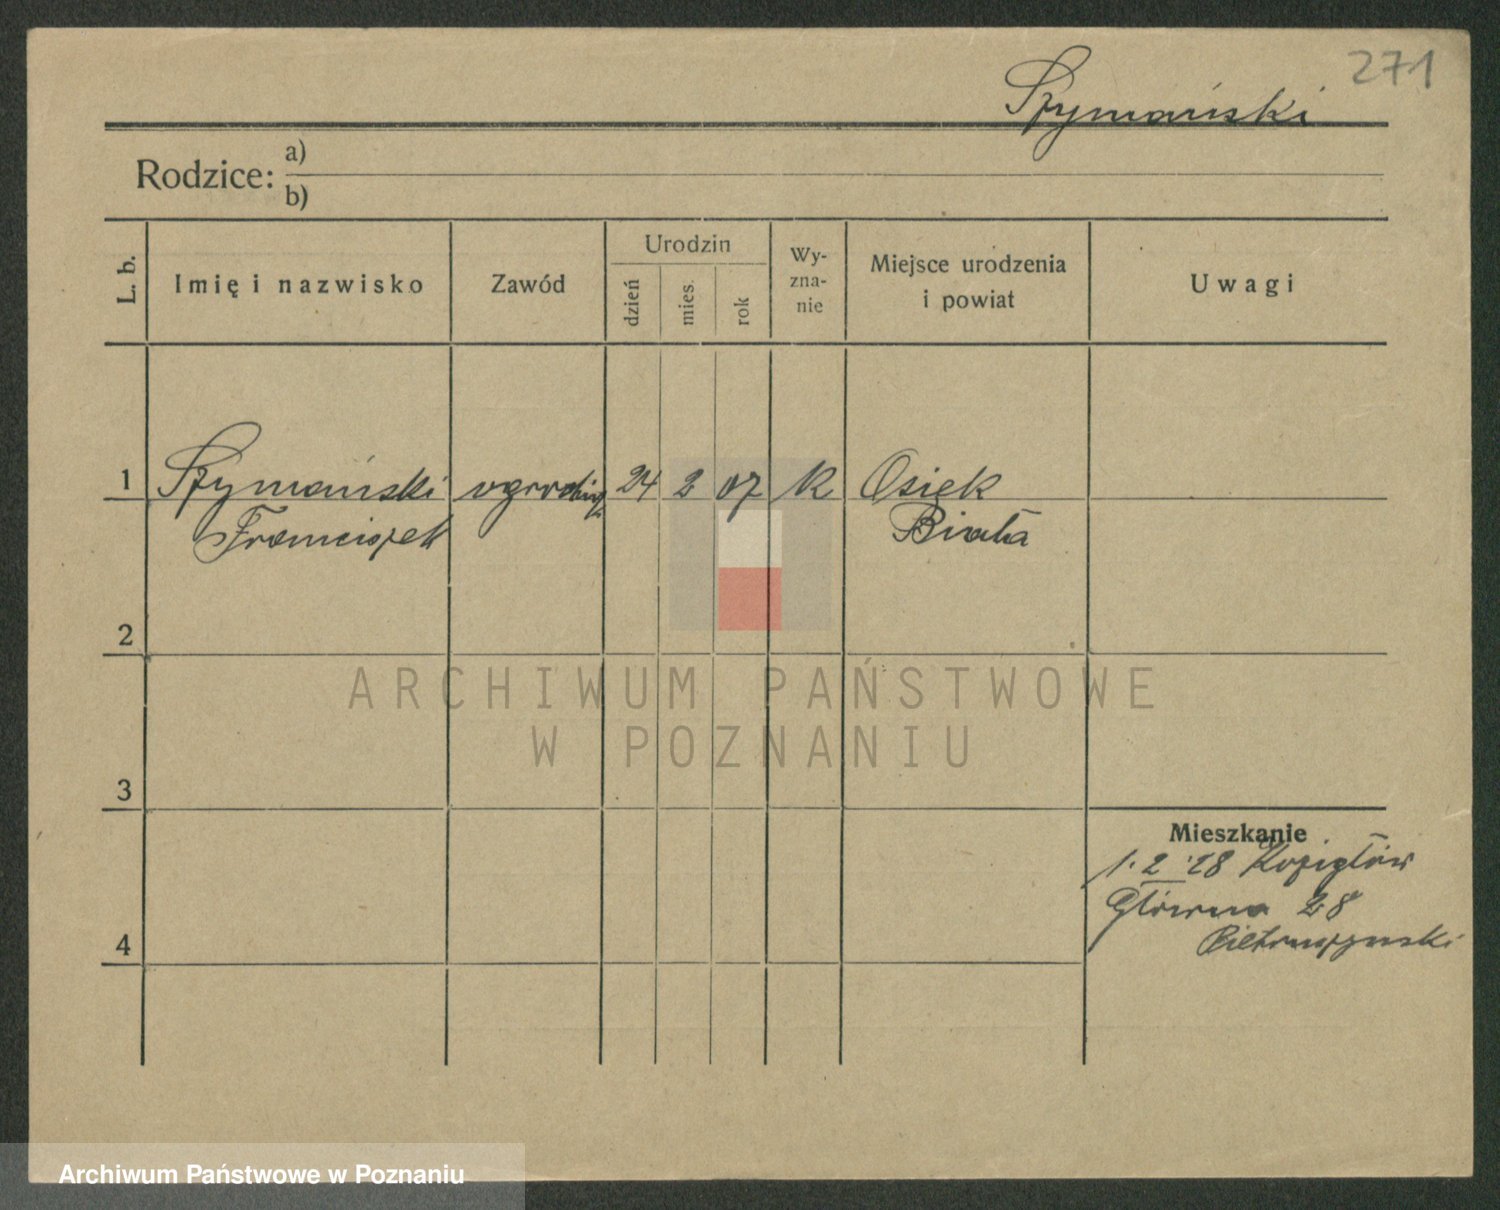 271
Szymański
Rodzice: a)
b)
L. b.
Imię i nazwisko
Zawód
Urodzin
dzień
mies.
rok
Wy-
zna-
nie
Miejsce urodzenia
i powiat
Uwagi
1 Szymański ogrodnicz 24 2 07 k Osiek
Franciszek Biała
2
3
4
Mieszkanie
1.2 '28 Kozigłów
Główna 28
Pietruszyński
ARCHIWUM PAŃSTWOWE
W POZNANIU
Archiwum Państwowe w Poznaniu